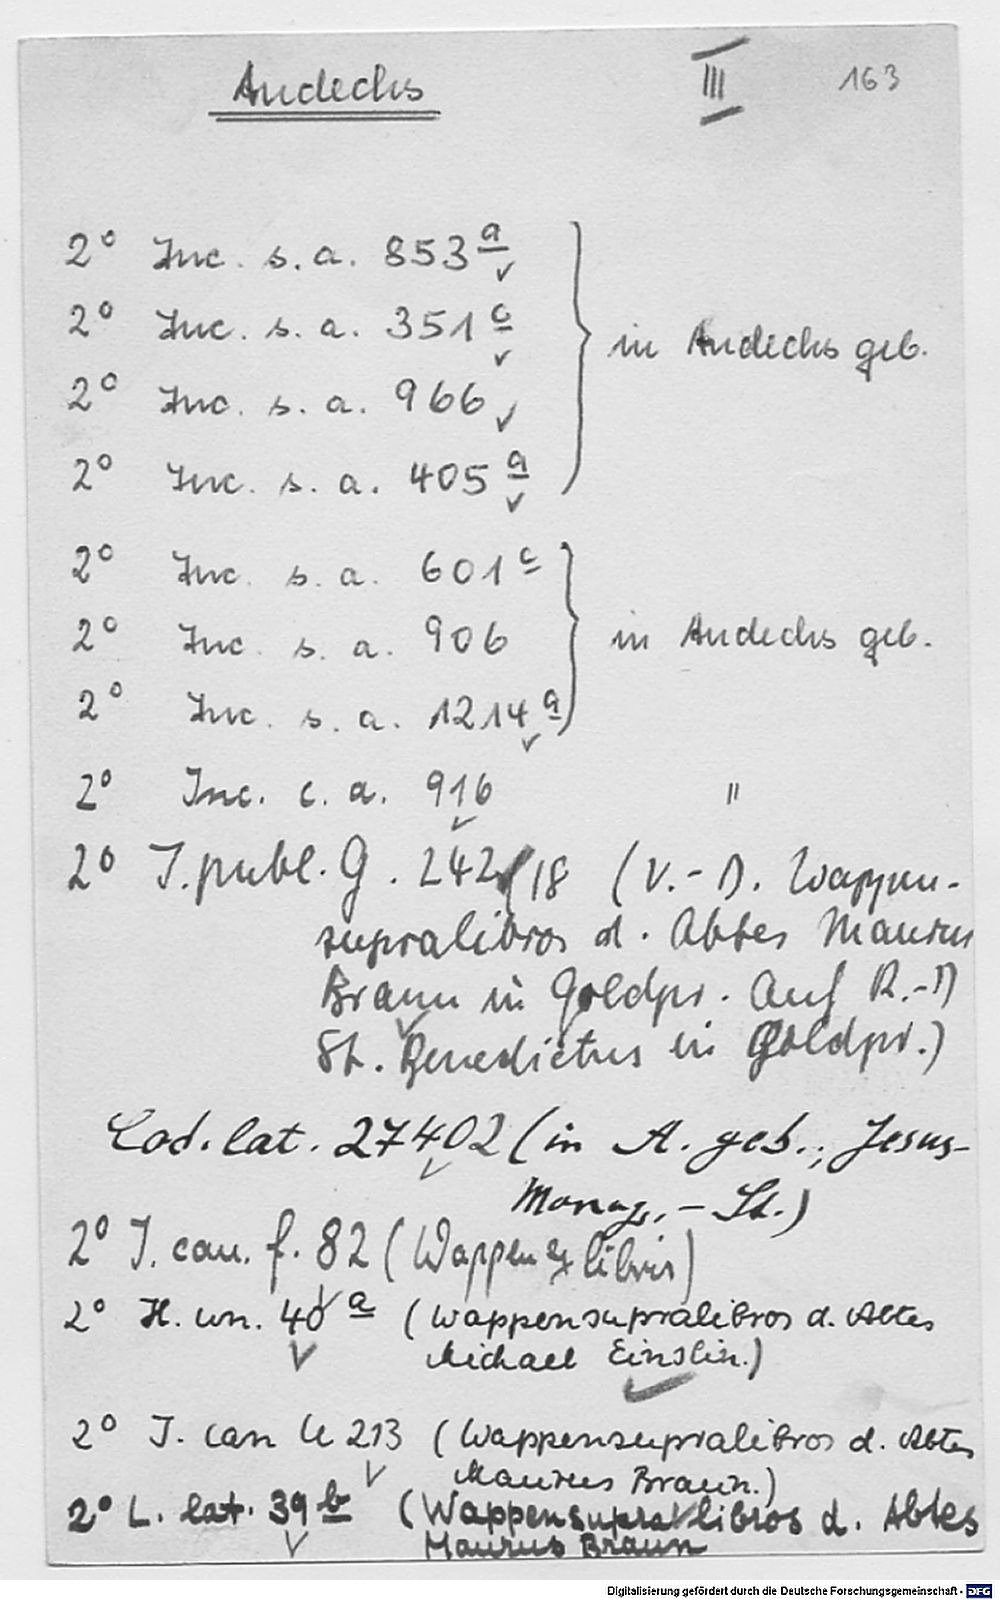 Andechs III 163
2° Inc. s. a. 853 a
2° Inc. s. a. 351 c in Andechs geb.
2° Inc. s. a. 966
2° Inc. s. a. 405 a
2° Inc. s. a. 601 c
2° Inc. s. a. 906 in Andechs geb.
2° Inc. s. a. 1214 a
2° Inc. c. a. 916 "
2° J. publ. G. 242/18 (V.-D. Wappen-
supralibros d. Abtes Maurus
Braun in Goldpr. Auf R.-D
St. Benedictus in Goldpr.)
Cod. lat. 27402 (in A. geb., Jesus-
Monogr.-St.)
2° J. can. f. 82 (Wappenexlibris)
2° H. un. 40 a (Wappensupralibros d. Abtes
Michael Einslin.)
2° J. can U 213 (Wappensupralibros d. Abtes
Maurus Braun.)
2° L. lat. 39 b (Wappensupralibros d. Abtes
Maurus Braun
Digitalisierung gefördert durch die Deutsche Forschungsgemeinschaft - DFG